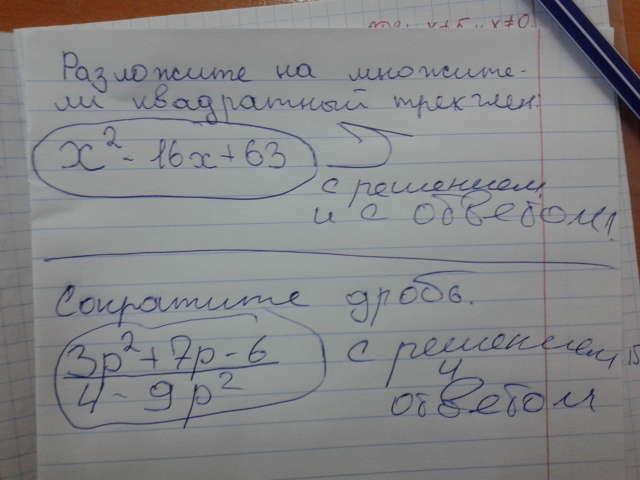 Разложите на множите-
ли квадратный трехчлен
x² - 16x + 63
с решением
и с ответом
Сократите дробь.
3p² + 7p - 6
4 - 9p²
с решением
и
ответом